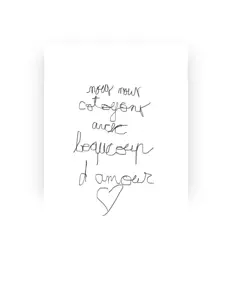 nous nous
cotoyons
avec
boqucoup
d amour